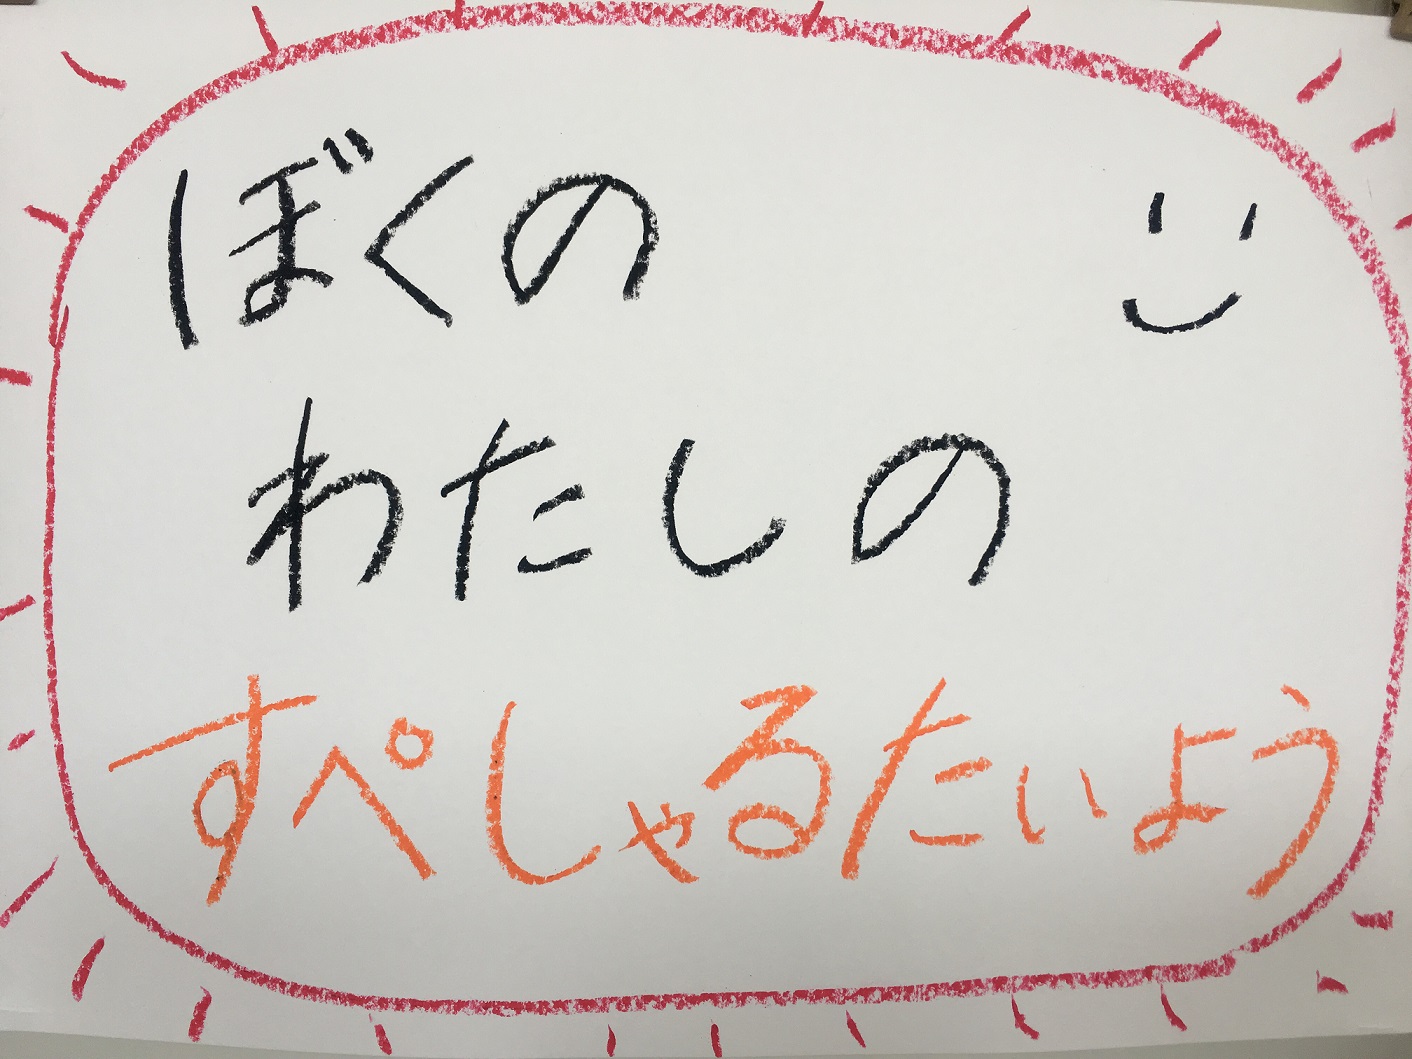 ぼくの
わたしの
すぺしゃるたいよう